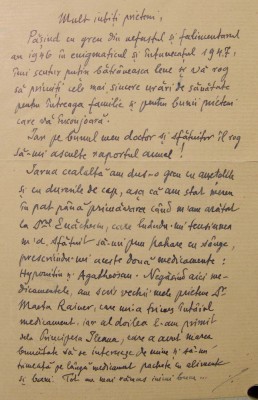 Mult iubiți prieteni,
Pășind cu greu din nefastul și falimentarul
an 1946 în enigmaticul și întunecatul 1947,
îmi scutur puțin bătrâneasca lene și vă rog
să primiți cele mai sincere urări de sănătate
pentru întreaga familie și pentru bunii prieteni
care vă înconjoară.
Iar pe bunul meu doctor și sfătuitor îl rog
să-mi asculte raportul anual!
Iarna cealaltă am dus-o greu cu
și cu durerile de cap, așa că am stat
în pat până primăvara când m-am arătat
la Dr. Enăchescu, care
m-a sfătuit să-mi pun de sânge,
prescriindu-mi aceste două medicamente:
Hypotonin și Agatheosan. Negăsind aici me-
dicamentele, am scris vechii mele prietene Dr.
Marta Rainer, care mi-a trimis întâiul
medicament. iar al doilea l-am primit
dela Principesa Ileana, care a avut marea
bunătate să se intereseze de mine și să-mi
trimeată pe lângă medicament pachete cu alimente
și bani. Tot mi-a mai rămas inimi bune